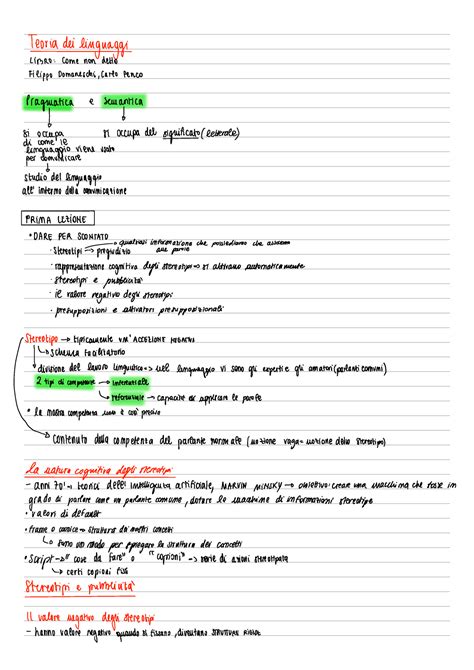 Teoria dei linguaggi
LIBRO: Come non detto
Filippo Domaneschi, Carlo Penco
Pragmatica e Semantica
si occupa si occupa del significato (letterale)
di come il
linguaggio viene usato
per comunicare
studio del linguaggio
all'interno della comunicazione
PRIMA LEZIONE
• DARE PER SCONTATO
qualsiasi informazione che possediamo che associamo
· Stereotipi → pregiudizio
· rappresentazione cognitiva degli stereotipi → si attivano automaticamente
· stereotipi e pubblicità
· il valore negativo degli stereotipi
· presupposizioni e attivatori presupposizionali
Stereotipo → tipicamente un' ACCEZIONE NEGATIVA
↳ schema facilitatorio
divisione del lavoro linguistico → nel linguaggio vi sono gli esperti e gli amatori (parlanti comuni)
2 tipi di competenze → inferenziale
→ referenziale → capacità di applicare le parole
• la nostra competenza non è così precisa
Contenuto della competenza del parlante normale (nozione vaga = nozione dello stereotipo)
La natura cognitiva degli stereotipi
- anni 70' → teorici dell' intelligenza artificiale, MARVIN MINSKY → obiettivo: creare una macchina che fosse in
grado di parlare come un parlante comune, dotare le macchine di informazioni stereotipe
• valori di default
• frame o cornice → struttura dei nostri concetti
↳ sono un modo per spiegare la struttura dei concetti
• Script → "cose da fare" o "copioni" → serie di azioni stereotipate
↳ certi copioni fissi
Stereotipi e pubblicità
Il valore negativo degli stereotipi
- hanno valore negativo quando si fissano, diventano STRUTTURE RIGIDE